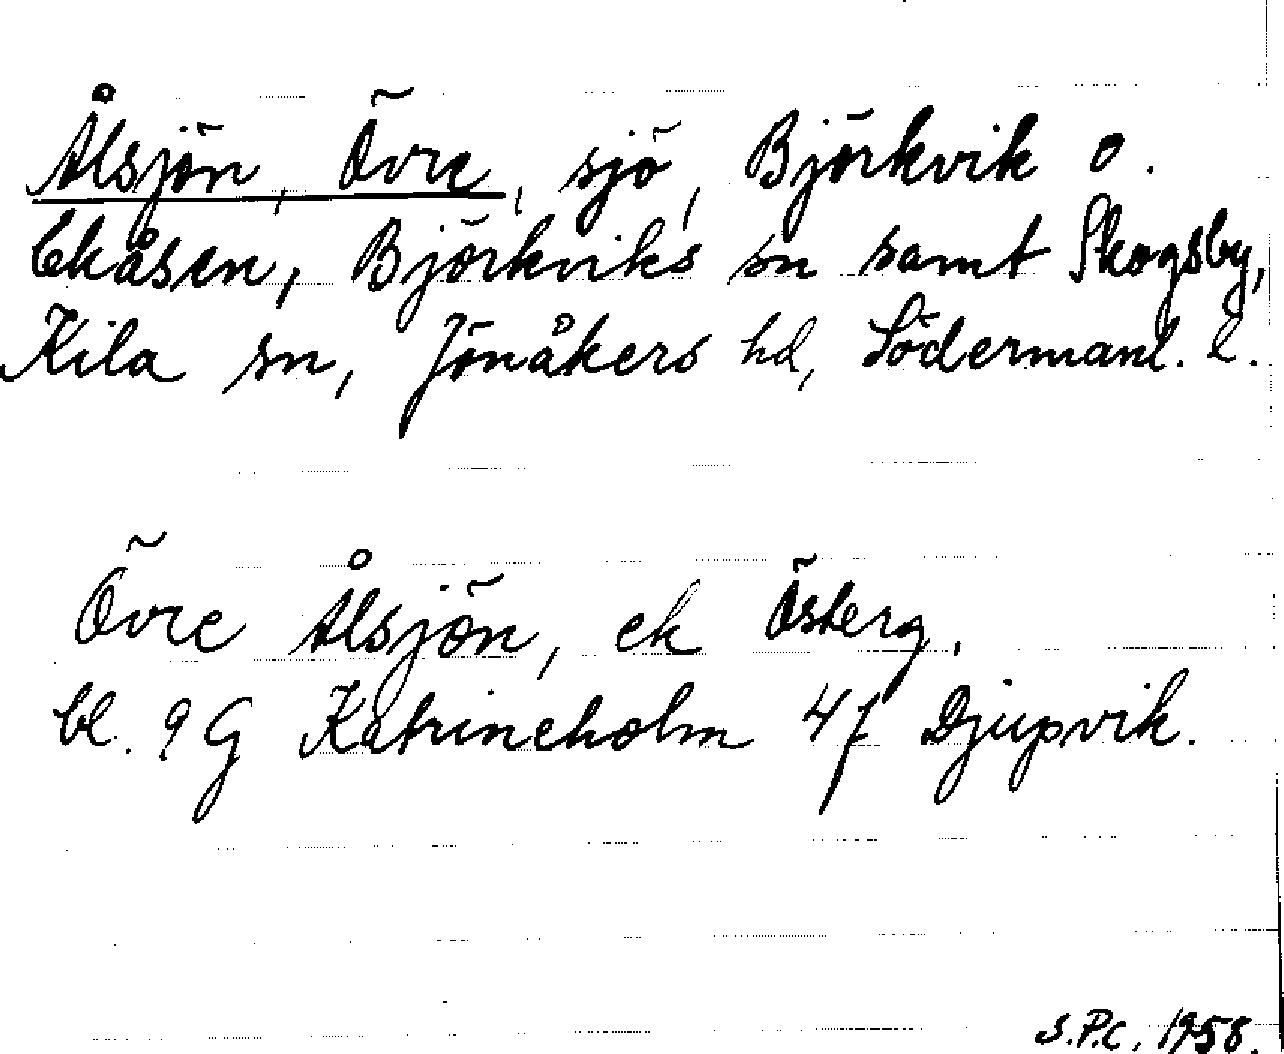 Ålsjön, Övre, sjö, Björkvik o.
Ekåsen, Björkviks sn samt Skogsby,
Kila sn, Jönåkers hd, Södermanl. l.
Övre Ålsjön, ek Österg.
bl. 9G Katrineholm 4f Djupvik.
S.P.C. 1958.